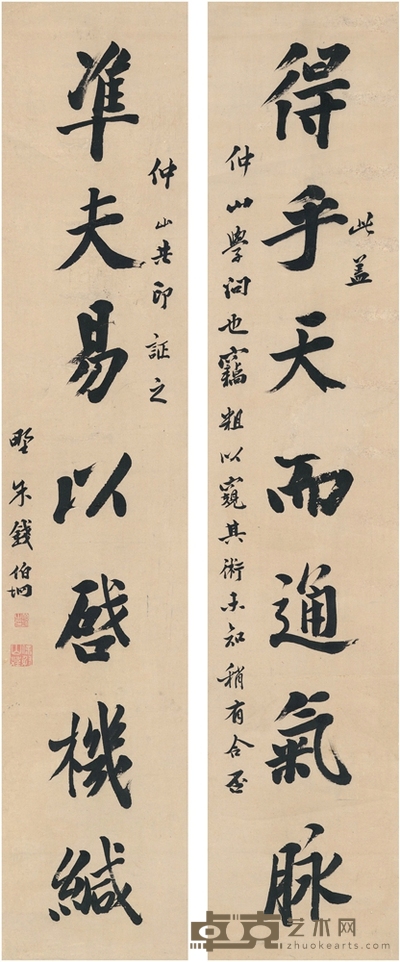 得乎天而通氣脉
此蓋
仲山學問也竊粗以窺其術未知稍有合否
準夫易以啓機緘
仲山共印証之
野朱錢伯坰
卓克艺术网
zhuokearts.com